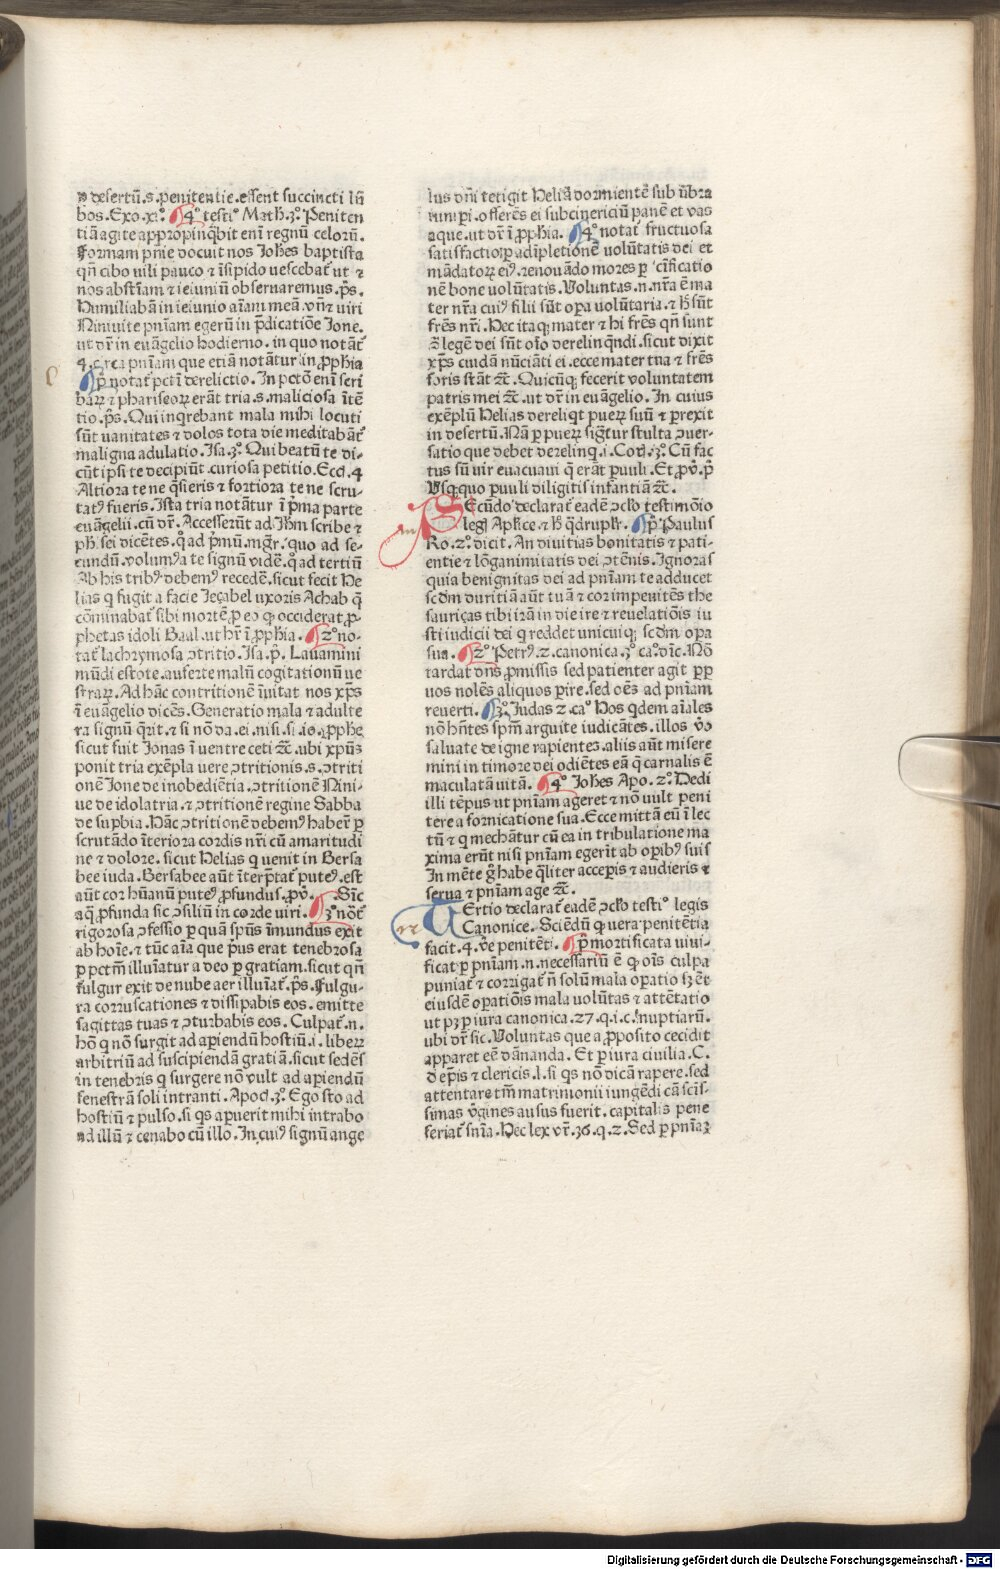 ꝺ desertū.s.penitentie.essent succincti lū
bos.Exo.xiº. 4º testiº Math.3º.Peniten
tiā agite appropinq̄bit enī regnū celorū.
Formam pn̄ie docuit nos Joh̄es baptista
qn̄ cibo uili pauco ⁊ īsipido uescebat̄ ut ⁊
nos abstīam ⁊ ieiuniū obseruaremus.p̄s.
Humiliabā in ieiunio aīam meā.vn̄ ⁊ uiri
Niniuite pn̄iam egerū in p̄dicatiōe Jone.
ut dr̄ in euāgelio hodierno.in quo notāt̄
4.circa pn̄iam que etiā notātur in ꝓph̄ia
pº notat̄ pctī derelictio.In pctō enī scri
barꝝ ⁊ phariseoꝝ erāt tria.s.maliciosa ītē
tio.p̄s.Qui inqrebant mala mihi locuti
sūt uanitates ⁊ dolos tota die meditabāt̄
maligna adulatio.Isa.3º.Qui beatū te di-
cūt ipsi te decipiūt.curiosa petitio.Eccl.4
Altiora te ne q̄sieris ⁊ fortiora te ne scru-
tatꝰ fueris.Ista tria notātur ī p̄ma parte
euāgelii.cū dr̄.Accesserūt ad Jhm̄ scribe ⁊
ph̄.sei dicētes.q̄ ad p̄mū.mgr̄.quo ad se-
cundū.volumꝰ a te signū vidē.q̄ ad tertiū
Ab his tribꝰ debemꝰ recedē.sicut fecit He
lias q fugit a facie Jeçabel uxoris Achab q̄
cōminabat̄ sibi mortē ꝓ eo ꝙ occiderat ꝓ-
phetas idoli Baal.ut hr̄ ī ꝓph̄ia. 2º no-
tat̄ lachrymosa ꝯtritio.Isa.p̄.Lauamini
mūdi estote.auferte malū cogitationū ue
straꝝ.Ad hāc contritionē īuitat nos xp̄s
ī euāgelio dicēs.Generatio mala ⁊ adulte
ra signū q̄rit.⁊ si nō da.ei.nisi.si.io.ꝓphe.
sicut fuit Jonas ī uentre ceti ⁊c̄.ubi xpūs
ponit tria exēpla uere ꝯtritionis.s.ꝯtriti
onē Jone de inobediētia.ꝯtritionē Nini-
ue de idolatria.⁊ ꝯtritionē regine Sabba
de suꝑbia.Hāc ꝯtritionē debemꝰ haber̄ ꝑ
scrutādo īteriora cordis nr̄i cū amaritudi
ne ⁊ dolore.sicut Helias q uenit in Bersa
bee iuda.Bersabee aūt īterp̄tat̄ puteꝰ.est
aūt cor hūanū puteꝰ ꝓfundus.ꝓv̄. Sīc
aq̄ ꝓfunda sic ꝯsiliū in corde uiri. 3º nōt̄
rigorosa ꝯfessio ꝑ quā spūs īmundus exit
ab hoīe.⁊ tūc aīa que p̄us erat tenebrosa
ꝑ pctm̄ illuīatur a deo ꝑ gratiam.sicut qn̄
fulgur exit de nube aer illuīat̄.p̄s.Fulgu-
ra corruscationes ⁊ dissipabis eos.emitte
sagittas tuas ⁊ ꝯturbabis eos.Culpat̄.n.
hō q nō surgit ad aꝑiendū hostiū.i.liberꝝ
arbitriū ad suscipiendā gratiā.sicut sedēs
in tenebris q surgere nō vult ad aꝑiendū
fenestrā soli intranti.Apoc.3º.Ego sto ad
hostiū ⁊ pulso.si qs aꝑuerit mihi intrabo
ad illū ⁊ cenabo cū illo.In cuiꝰ signū ange
lus dn̄i tetigit Heliā dormientē sub ūbra
iuniꝑi.offerēs ei subcinericiū panē et vas
aque.ut dr̄ ī ꝓph̄ia. 4º notat̄ fructuosa
satisfactio ꝑ adīpletionē volūtatis dei et
mādatoꝝ eiꝰ.renouādo mores ꝑ
nē bone volūtatis.Voluntas.n.nr̄a ē ma
ter nr̄a cuiꝰ filii sūt oꝑa volūtaria.⁊ hi sūt
frēs nr̄i.Hec itaqꝫ mater ⁊ hi frēs qn̄ sunt
ꝯ legē dei sūt oīo derelinqndi.sicut dixit
xp̄s cuidā nūciāti ei.ecce mater tua ⁊ frēs
foris stāt ⁊c̄.Quicūqꝫ fecerit voluntatem
patris mei ⁊c̄.ut dr̄ in euāgelio.In cuius
exēplū Helias dereliqt pueꝝ suū ⁊ ꝑrexit
in desertū.Nā ꝑ pueꝝ sigr̄tur stulta ꝯuer-
satio que debet derelinq̄.i.Coꝝ.3º.Cū fac
tus sū vir euacuaui q̄ erāt ꝑuuli.Et ꝓv̄.p̄
Vsqꝫquo ꝑuuli diligitis infantiā ⁊c̄.
SEcūdo declarat̄ eadē ꝯclo testimōio
legꝭ Aplice ⁊ h̄ q̄druplr̄. pº Paulus
Ro.2º.dicit.An diuitias bonitatis ⁊ pati-
entie ⁊ lōganimitatis dei ꝯtēnis.Ignoras
quia benignitas dei ad pn̄iam te adducet
scdm duritiā aūt tuā ⁊ cor impenitēs the
sauriças tibi irā in die ire ⁊ reuelatiōis iu
sti iudicii dei q reddet unicuiqꝫ scdm oꝑa
sua. 2º Petrꝰ.2.canonica.3º caº.dīc.Nō
tardat dn̄s ꝓmissis sed patienter agit ꝓp
uos nolēs aliquos ꝑire.sed oēs ad pn̄iam
reuerti. 3º.Judas 2.caº Hos qdem aīales
nō hn̄tes spm̄ arguite iudicātes.illos v̄o
saluate de igne rapientes.aliis aūt misere
mini in timore dei odiētes eā q̄ carnalis ē
maculatā uitā. 4º Joh̄es Apo.2º.Dedi
illi tēpus ut pn̄iam ageret ⁊ nō uult peni
tere a fornicatione sua.Ecce mittā eū ī lec
tū ⁊ q mechātur cū ea in tribulatione ma
xima erūt nisi pn̄iam egerīt ab oꝑibꝰ suis
In mēte g̊ habe q̄liter acceꝑis ⁊ audieris ⁊
serua ⁊ pn̄iam age ⁊c̄.
TErtio declarat̄ eadē ꝯclo testiº legis
Canonice.Sciēdū ꝙ uera penitētia
facit.4.v̄e penitēti. pº mortificata uiui-
ficat ꝑ pn̄iam.n.necessariū ē ꝙ oīs culpa
puniat̄ ⁊ corrigat̄ nō solū mala oꝑatio sꝫ ēt
eiusdē oꝑatiōis mala uolūtas ⁊ attētatio
ut pꝫ ꝑ iura canonica.27.q.i.c.si nuptiarū.
ubi dr̄ sic.Voluntas que a ꝓposito cecidit
apparet eē dānanda.Et ꝑ iura ciuilia.C.
de ep̄is ⁊ clericis.l.si qs nō dicā rapere.sed
attentare tm̄ matrimonii iungēdi cā scīs-
simas v̄gines ausus fuerit.capitalis pene
feriat̄ sn̄ia.Hec lex vr̄.36.q.2.Sed ꝑ pn̄iaꝫ
Digitalisierung gefördert durch die Deutsche Forschungsgemeinschaft - DFG